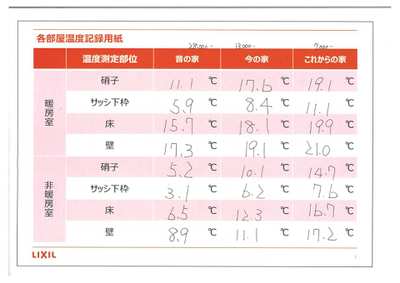 各部屋温度記録用紙
温度測定部位 昔の家 今の家 これからの家
暖房室
硝子 11.1 ℃ 17.6 ℃ 19.1 ℃
サッシ下枠 5.9 ℃ 8.4 ℃ 11.1 ℃
床 15.7 ℃ 18.1 ℃ 19.9 ℃
壁 17.3 ℃ 19.1 ℃ 21.0 ℃
非暖房室
硝子 5.2 ℃ 10.1 ℃ 14.7 ℃
サッシ下枠 3.1 ℃ 6.2 ℃ 7.6 ℃
床 6.5 ℃ 12.3 ℃ 16.7 ℃
壁 8.9 ℃ 11.1 ℃ 17.2 ℃
LIXIL